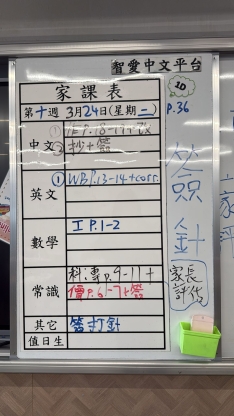 智愛中文平台
家課表
20
第十週 3月24日(星期二)
P.36
中文
③抄+簽
英文
①WB P.13-14+corr.
簽
針
數學
工P.1-2
常識
科:專P.9-11+
價P.6-7+簽
家長
評估
其它
簽打針
值日生